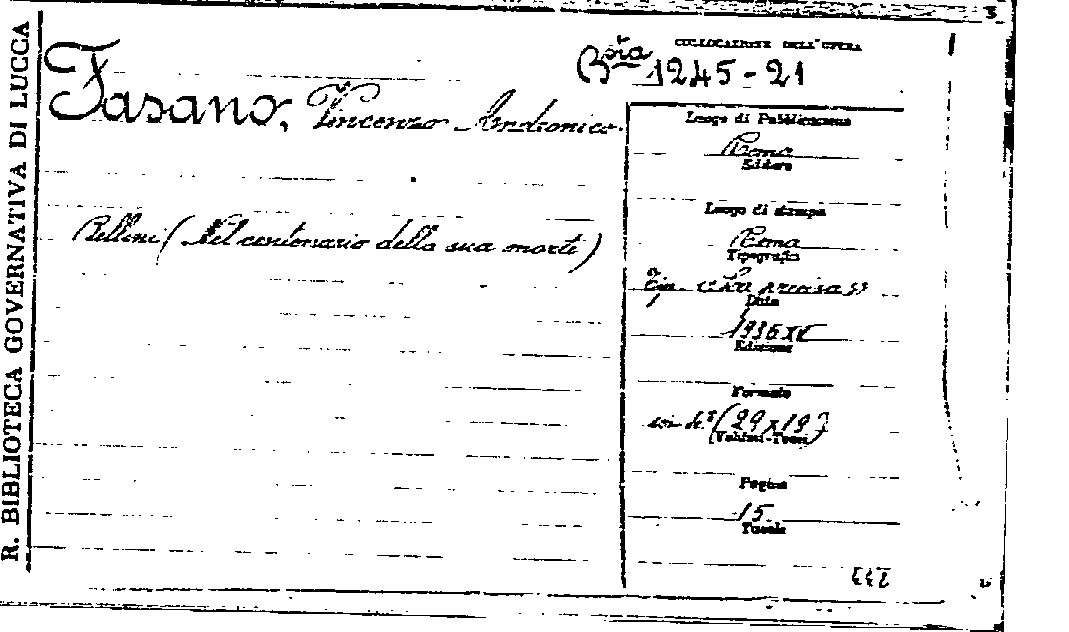 R. BIBLIOTECA GOVERNATIVA DI LUCCA
COLLOCAZIONE DELL'OPERA
Bsta 1245-21
Fasano, Vincenzo Andronico.
Bellini (Nel centenario della sua morte)
Luogo di Pubblicazione
Roma
Editore
Luogo di stampa
Roma
Tipografia
Tip. «La precisa»
Data
1936 XV
Edizione
Formato
in 4.° (29 x 19)
(Volumi-Tomi)
Pagine
15
Tavole